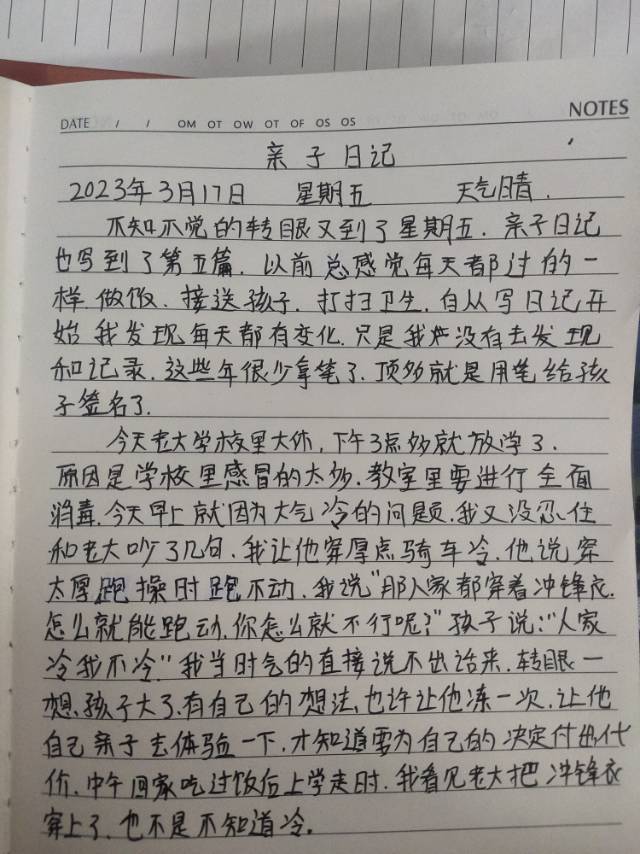 NOTES
DATE / / OM OT OW OT OF OS OS
亲子日记
2023年3月17日 星期五 天气晴.
不知不觉的转眼又到了星期五. 亲子日记
也写到了第五篇. 以前总感觉每天都过的一
样. 做饭. 接送孩子. 打扫卫生. 自从写日记开
始 我发现每天都有变化. 只是我没有去发现
和记录. 这些年很少拿笔了. 顶多就是用笔给孩
子签名了.
今天老大学校里大休, 下午3点多就放学了.
原因是学校里感冒的太多. 教室里要进行全面
消毒. 今天早上就因为天气冷的问题. 我又没忍住
和老大吵了几句. 我让他穿厚点骑车冷. 他说穿
太厚跑操时跑不动. 我说"那人家都穿着冲锋衣.
怎么就能跑动. 你怎么就不行呢?" 孩子说:"人家
冷我不冷" 我当时气的直接说不出话来. 转眼一
想. 孩子大了. 有自己的想法. 也许让他冻一次. 让他
自己亲子去体验一下. 才知道要为自己的决定付出代
价. 中午回家吃过饭后上学走时. 我看见老大把冲锋衣
穿上了. 也不是不知道冷.